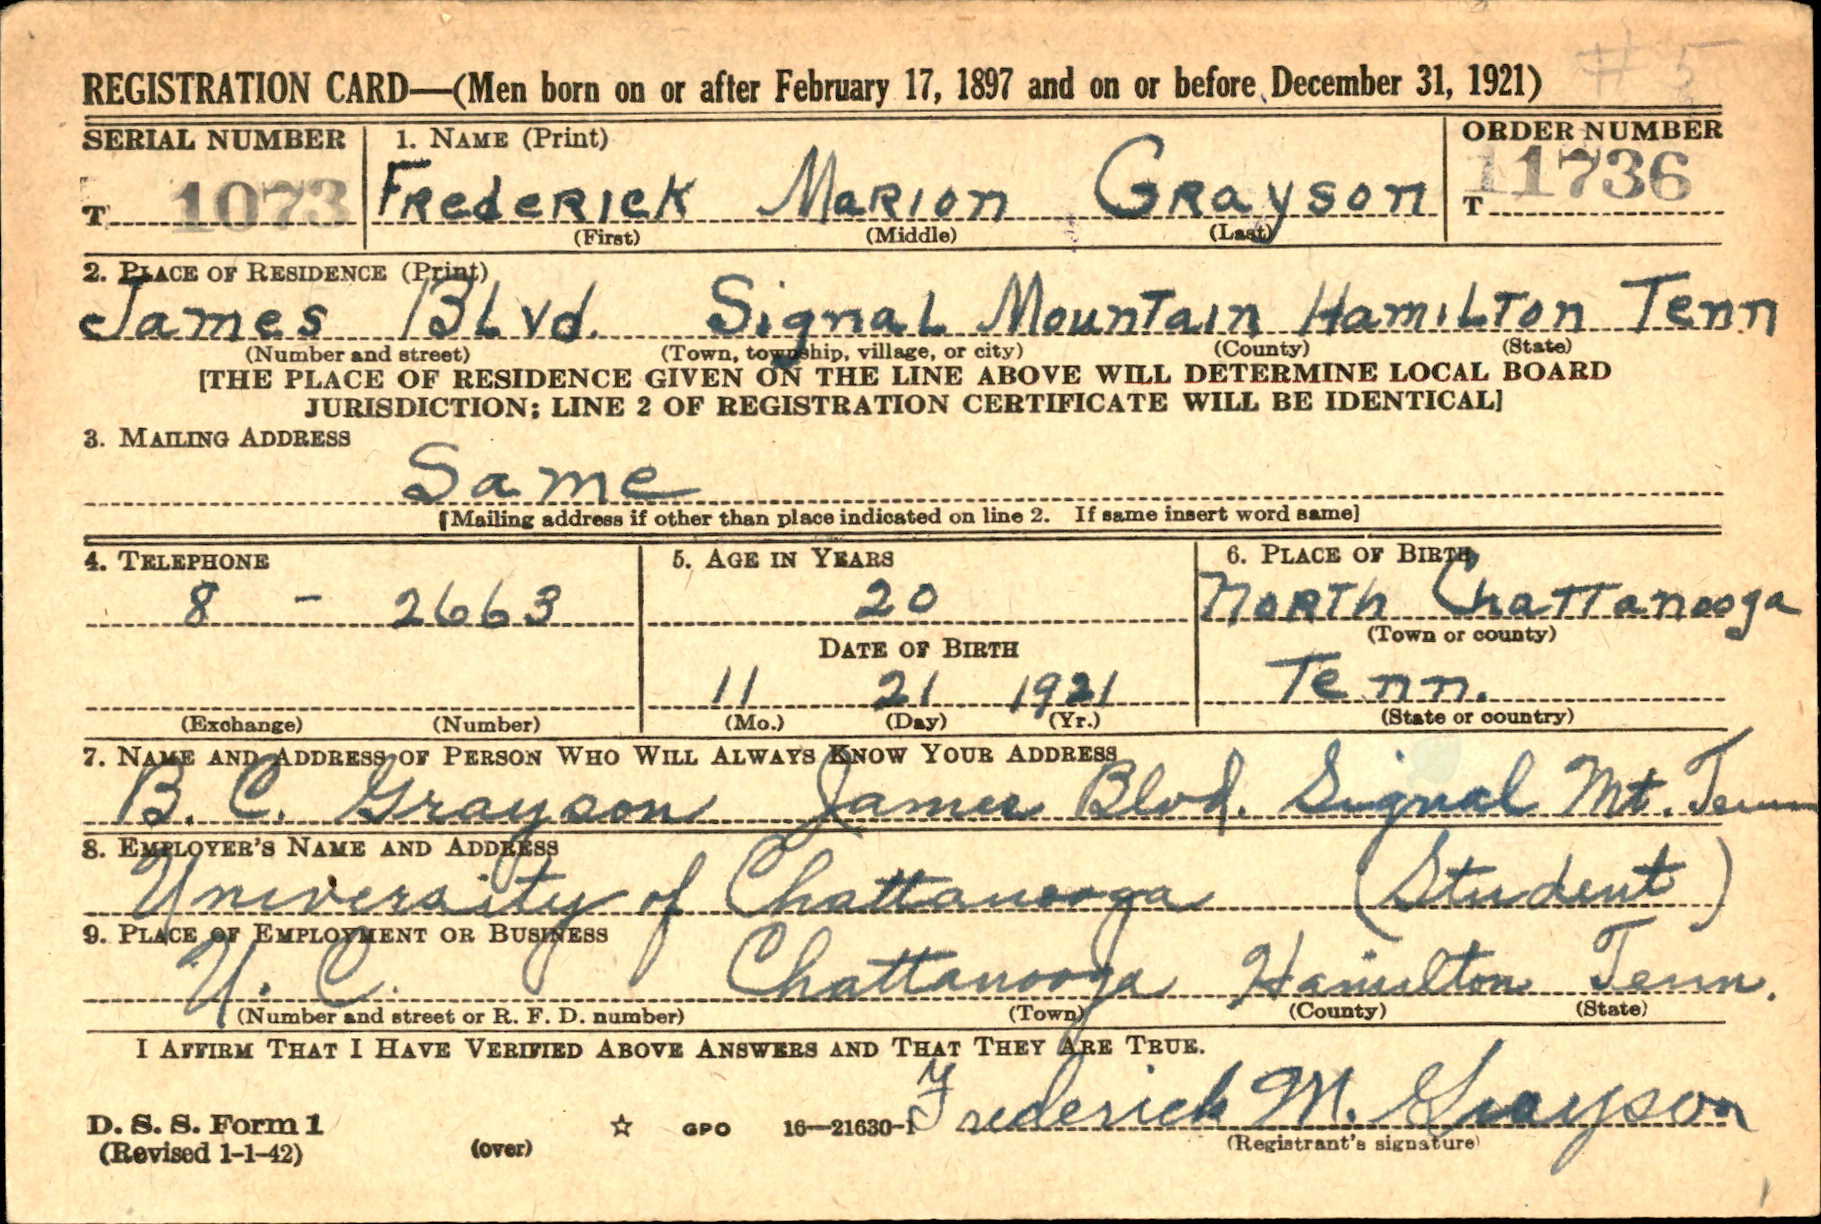 # 5
REGISTRATION CARD—(Men born on or after February 17, 1897 and on or before December 31, 1921)
SERIAL NUMBER 1. NAME (Print) ORDER NUMBER
T 1073 Frederick Marion Grayson T 11736
(First) (Middle) (Last)
2. PLACE OF RESIDENCE (Print)
James Blvd. Signal Mountain Hamilton Tenn
(Number and street) (Town, township, village, or city) (County) (State)
[THE PLACE OF RESIDENCE GIVEN ON THE LINE ABOVE WILL DETERMINE LOCAL BOARD
JURISDICTION; LINE 2 OF REGISTRATION CERTIFICATE WILL BE IDENTICAL]
3. MAILING ADDRESS
Same
[Mailing address if other than place indicated on line 2. If same insert word same]
4. TELEPHONE 5. AGE IN YEARS 6. PLACE OF BIRTH
8 - 2663 20 North Chattanooga
(Town or county)
DATE OF BIRTH
11 21 1921 Tenn.
(Exchange) (Number) (Mo.) (Day) (Yr.) (State or country)
7. NAME AND ADDRESS OF PERSON WHO WILL ALWAYS KNOW YOUR ADDRESS
B. C. Grayson James Blvd. Signal Mt. Tenn
8. EMPLOYER'S NAME AND ADDRESS
University of Chattanooga (Student)
9. PLACE OF EMPLOYMENT OR BUSINESS
U. C. Chattanooga Hamilton Tenn.
(Number and street or R. F. D. number) (Town) (County) (State)
I AFFIRM THAT I HAVE VERIFIED ABOVE ANSWERS AND THAT THEY ARE TRUE.
Frederick M. Grayson
D. S. S. Form 1 (over) ☆ GPO 16—21630-1 (Registrant's signature)
(Revised 1-1-42)